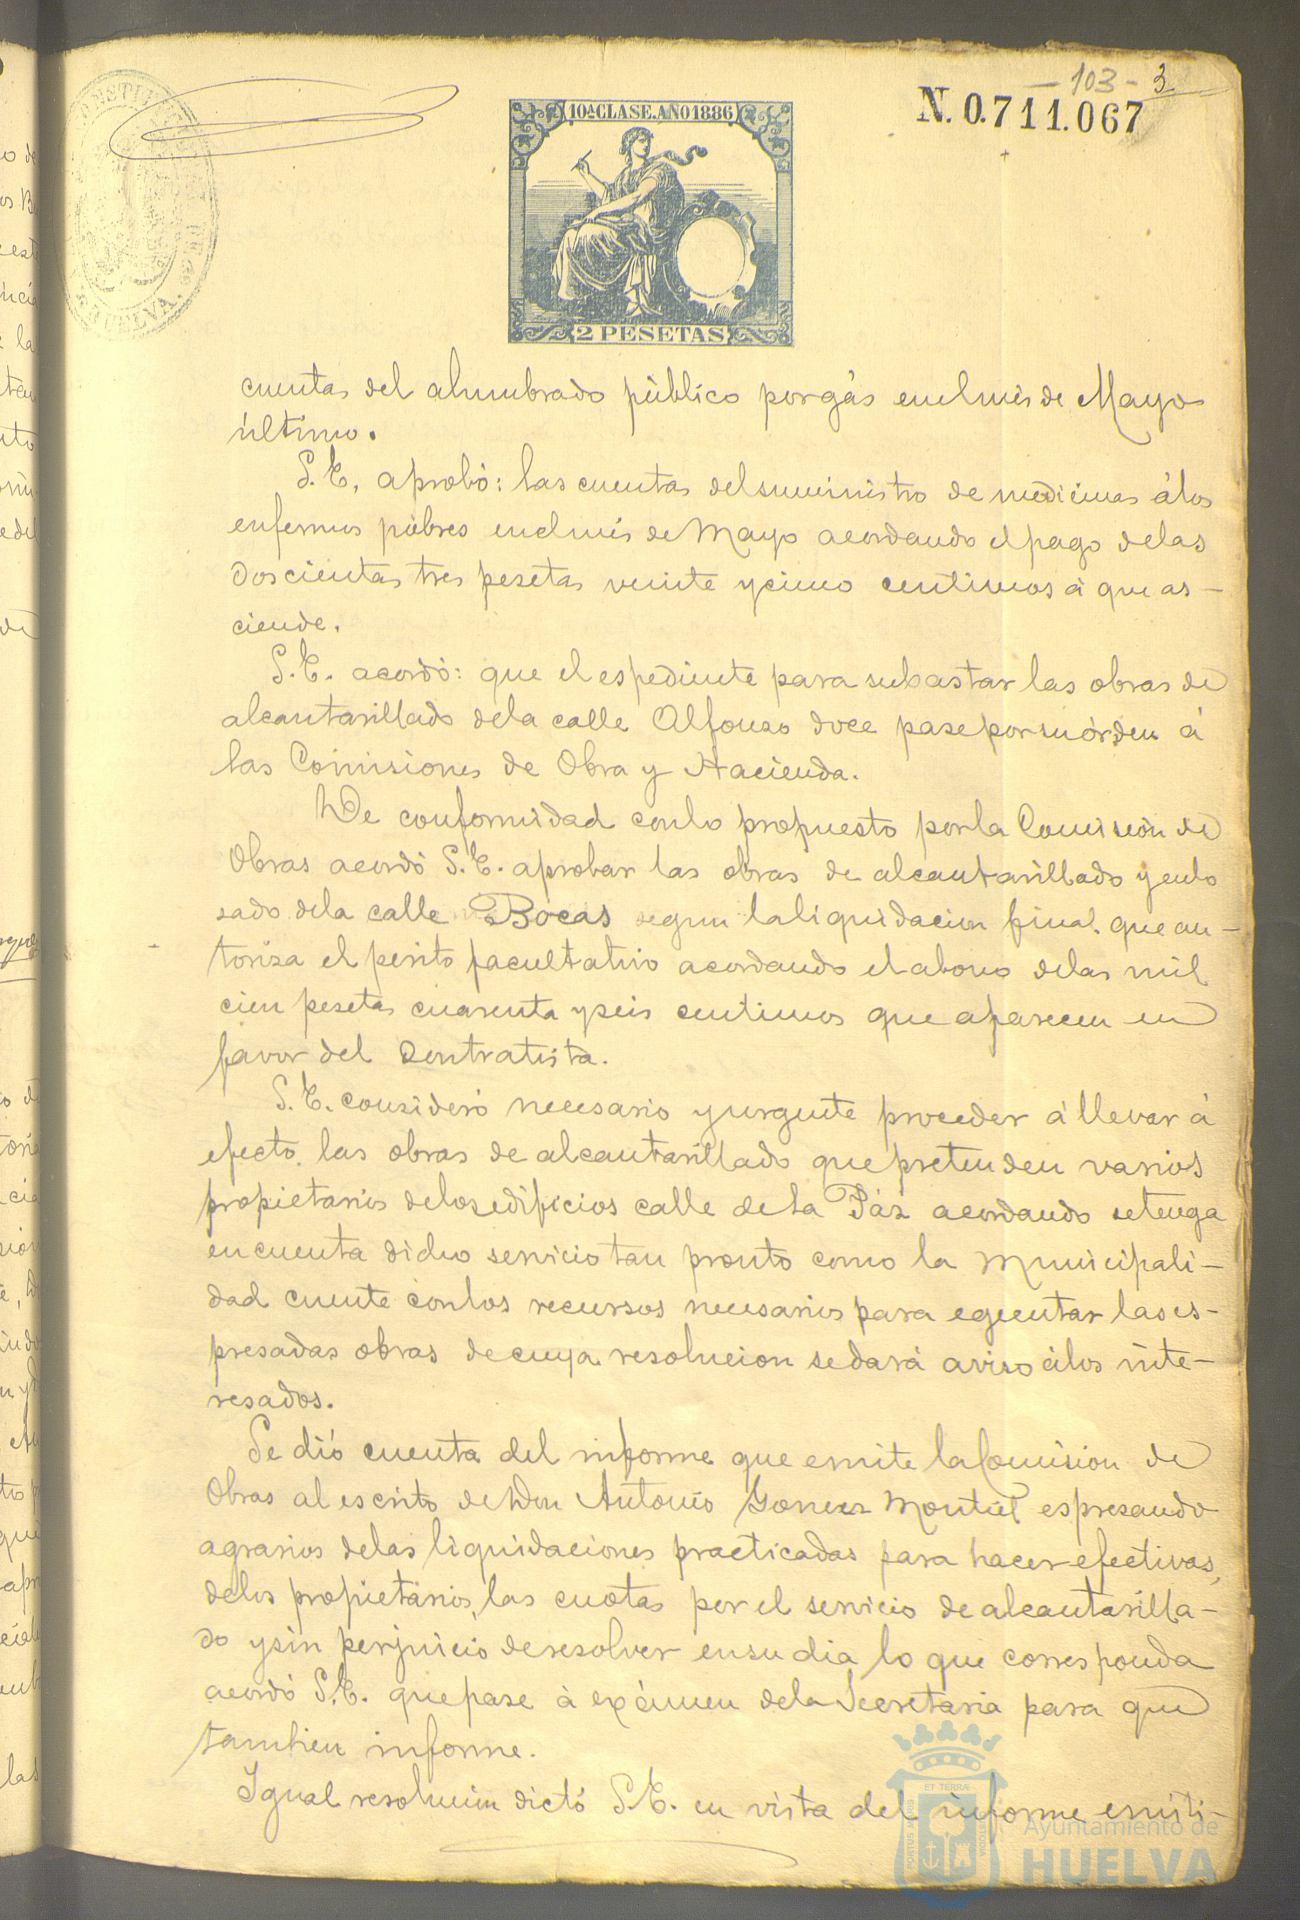 - 103 - 3
N. 0.711.067
10ª CLASE. AÑO 1886
2 PESETAS
HUELVA.
cuentas del alumbrado público por gás en el mes de Mayo
último.
S.E. aprobó: las cuentas del suministro de medicinas á los
enfermos pobres en el mes de Mayo acordando el pago de las
doscientas tres pesetas veinte y cinco centimos á que as-
ciende.
S.E. acordó: que el espediente para subastar las obras de
alcantarillado de la calle Alfonso doce pase por su órden á
las Comisiones de Obra y Hacienda.
De conformidad con lo propuesto por la Comisión de
Obras acordó S.E. aprobar las obras de alcantarillado y enlo
sado de la calle Bocas segun la liquidacion final que au-
toriza el perito facultativo acordando el abono de las mil
cien pesetas cuarenta y seis centimos que aparecen en
favor del Contratista.
S.E. consideró necesario y urgente proceder á llevar á
efecto las obras de alcantarillado que pretenden varios
propietarios de los edificios calle de la Páz acordando se tenga
en cuenta dicho servicio tan pronto como la Municipali-
dad cuente con los recursos necesarios para egecutar las es-
presadas obras de cuya resolucion se dará aviso á los inte-
resados.
Se dió cuenta del informe que emite la Comision de
Obras al escrito de Don Antonio Gomez Montiel espresando
agravios de las liquidaciones practicadas para hacer efectivas,
de los propietarios, las cuotas por el servicio de alcantarilla-
do y sin perjuicio de resolver en su dia lo que corresponda
acordó S.E. que pase á exámen de la Secretaria para que
tambien informe.
Igual resolucion dictó S.E. en vista del informe emiti-
Ayuntamiento de
HUELVA